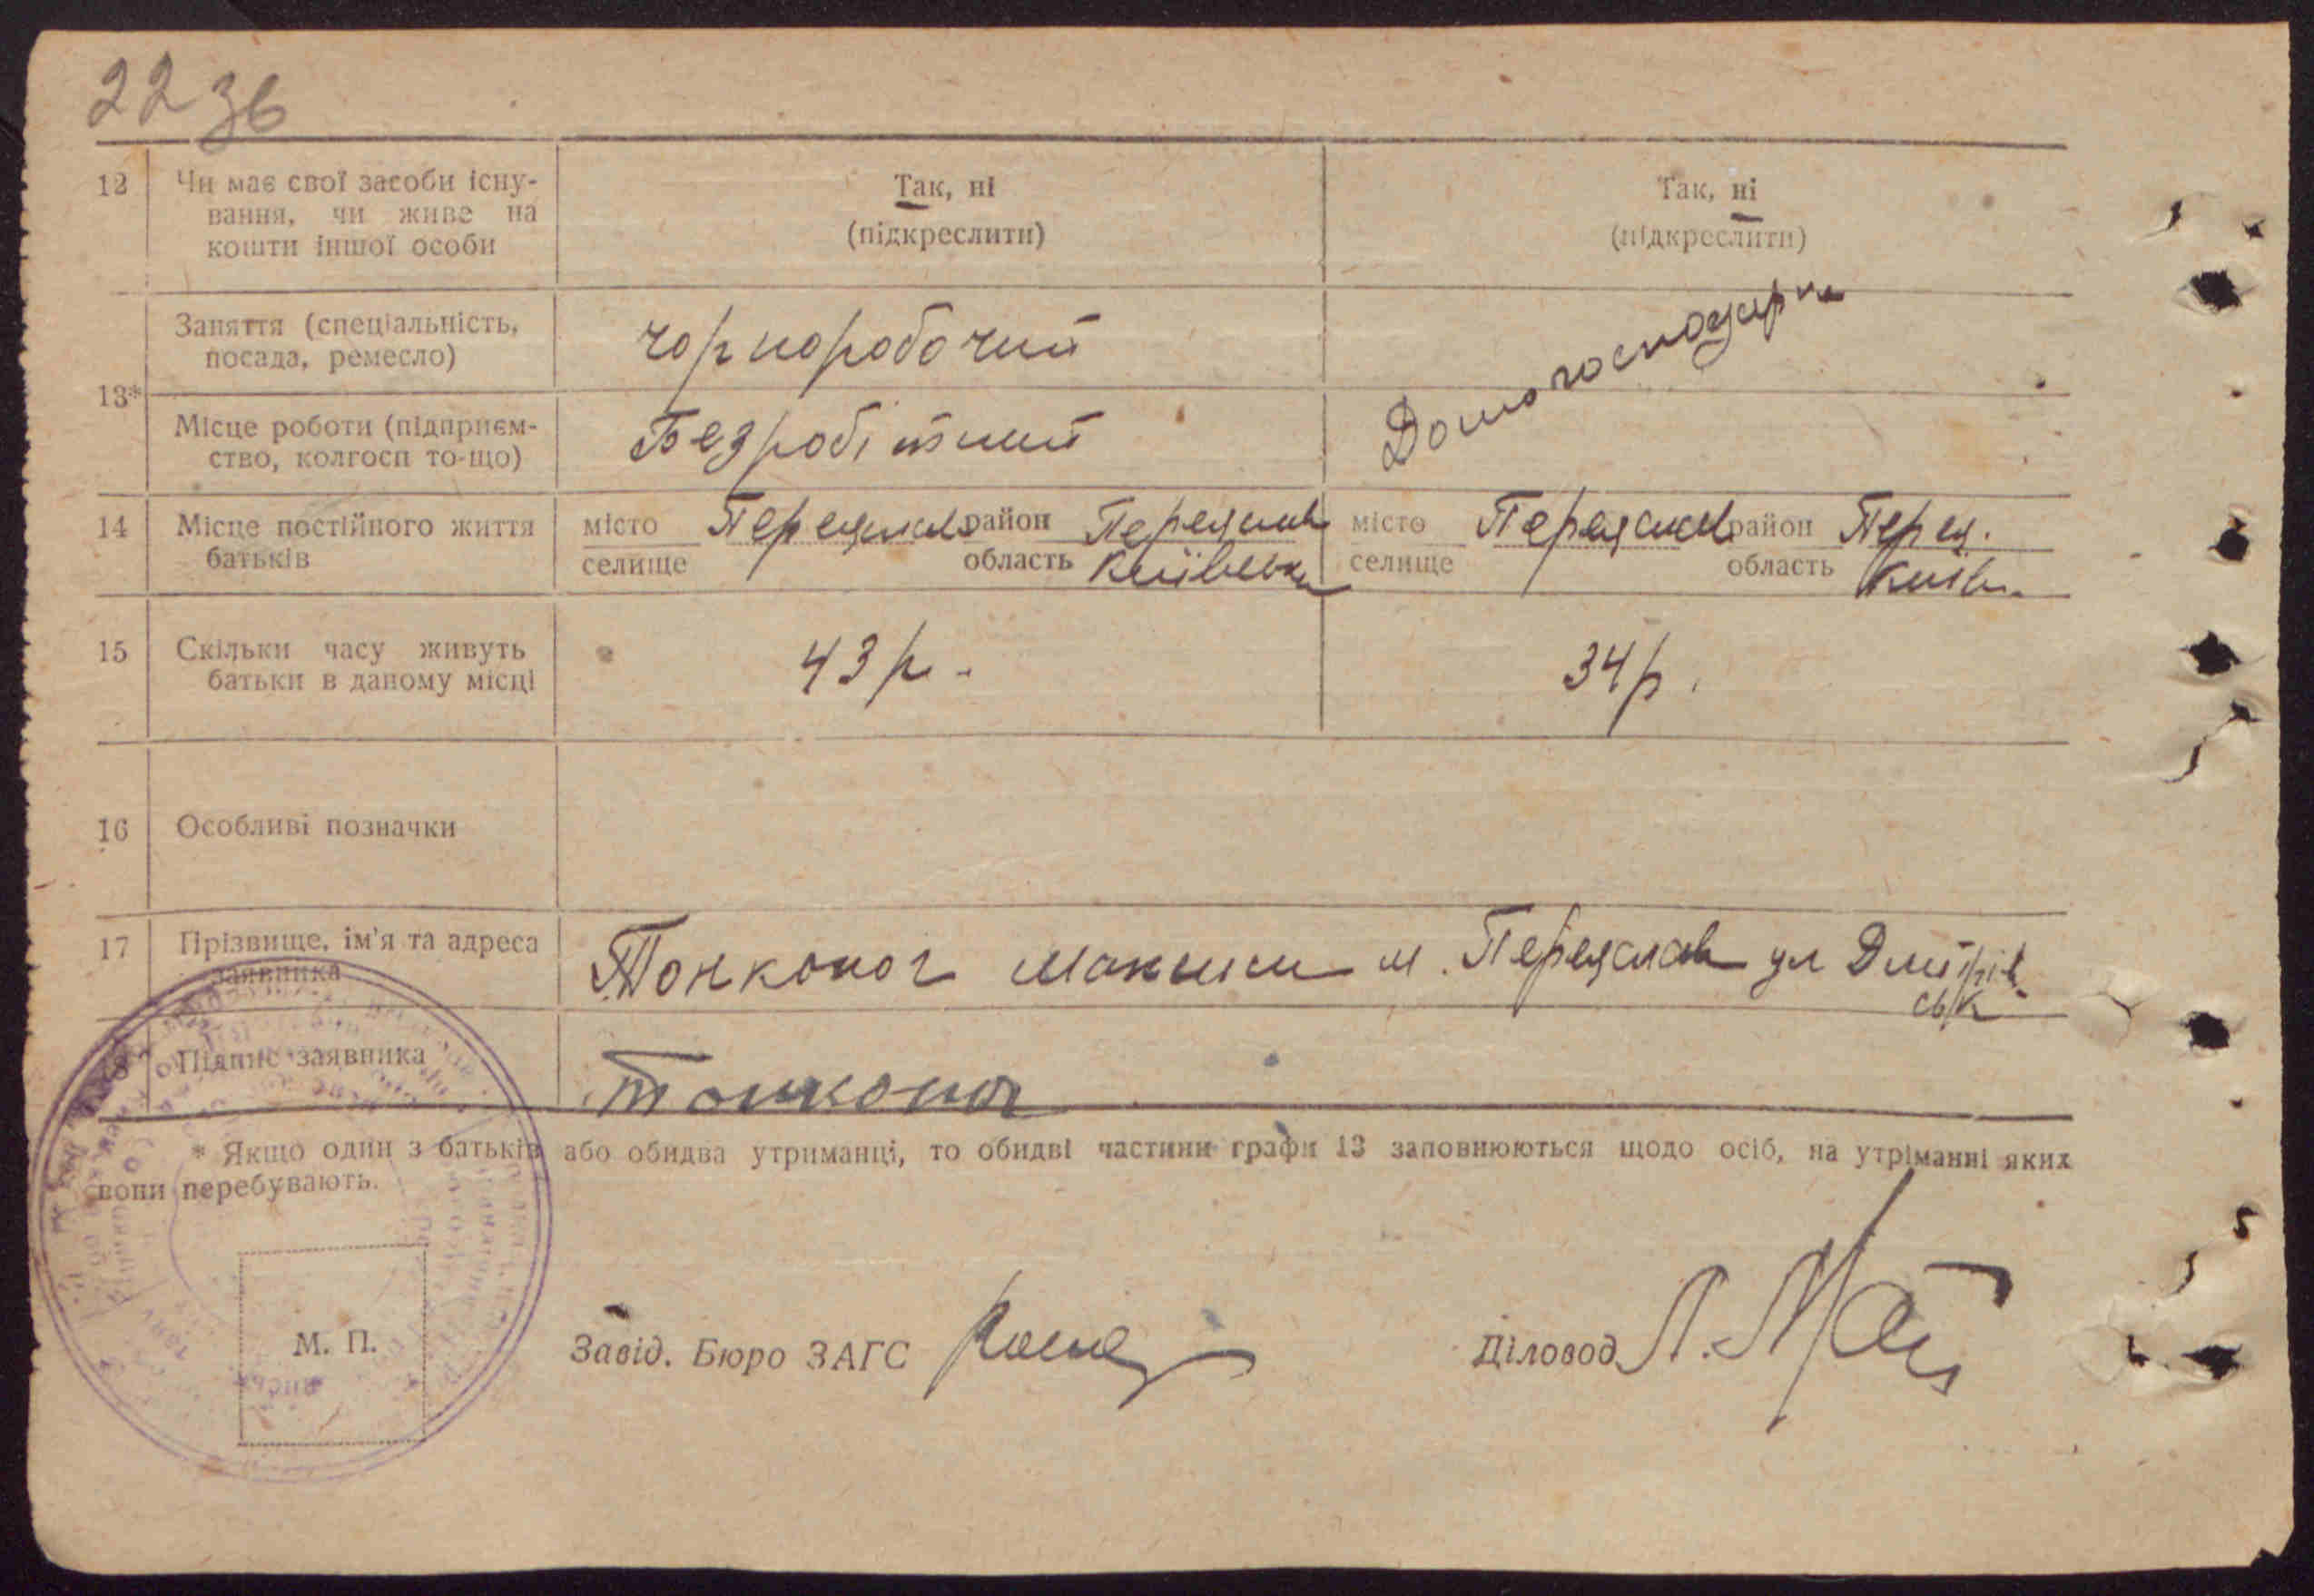 22 зв
12 Чи має свої засоби існу- Так, ні Так, ні
вання, чи живе на (підкреслити) (підкреслити)
кошти іншої особи
13* Заняття (спеціальність, чорноробочий Домогосподарка
посада, ремесло)
Місце роботи (підприєм- Безробітний
ство, колгосп то-що)
14 Місце постійного життя місто Переяслав район Переяслав місто Переяслав район Перея.
батьків селище область Київська селище область Київ.
15 Скільки часу живуть 43 р. 34 р.
батьки в даному місці
16 Особливі позначки
17 Прізвище, ім'я та адреса Тонконог Максим м. Переяслав ул Дмитрів
заявника ськ
Підпис заявника Тонконог
* Якщо один з батьків або обидва утриманці, то обидві частини графи 13 заповнюються щодо осіб, на утріманні яких
вони перебувають.
М. П.
Завід. Бюро ЗАГС Діловод